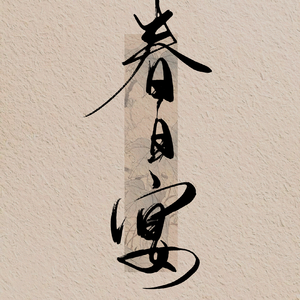 春日宴